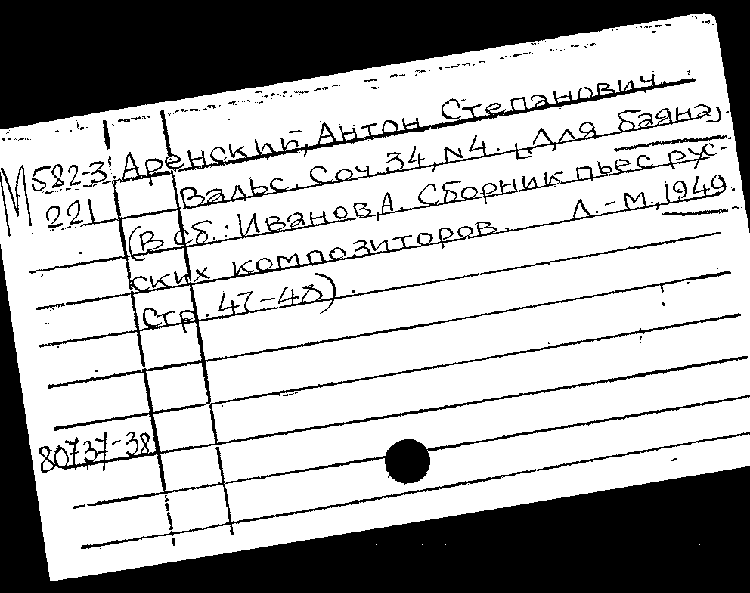 М 582-3 Аренский, Антон Степанович.
221 Вальс. Соч. 34, N4. [Для баяна].
(В сб.: Иванов, А. Сборник пьес рус-
ских композиторов. Л.-М., 1949.
Стр. 47-48).
80737-38